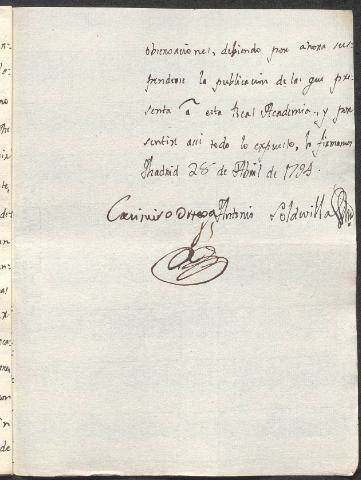 observaciones, debiendo por ahora sus-
penderse la publicacion de las que pre-
senta á esta Real Academia, y por
sentir asi todo lo expuesto, lo firmamos
Madrid 28 de Abril de 1794.
Casimiro Ortega Antonio Soldevilla